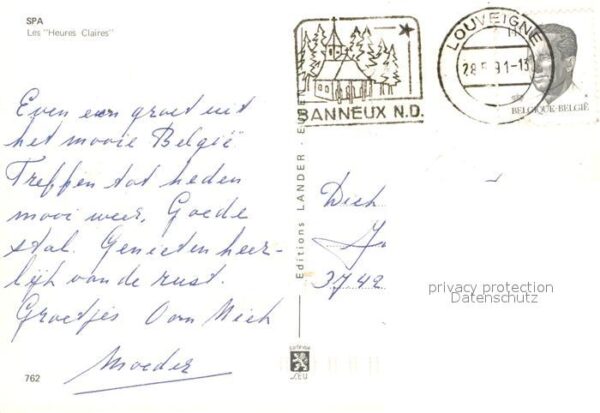 SPA
Les "Heures Claires"
LOUVEIGNE
28 5 91-13
BANNEUX N.D.
BELGIQUE-BELGIË
Even een groet uit
het mooie België
Treffen tot heden
mooi weer. Goede
stal. Genieten heer-
lijk van de rust.
Groetjes Oom Wich
Moeder
Editions LANDER - EUPEN
Dich
Ja
3742
privacy protection
Datenschutz
762